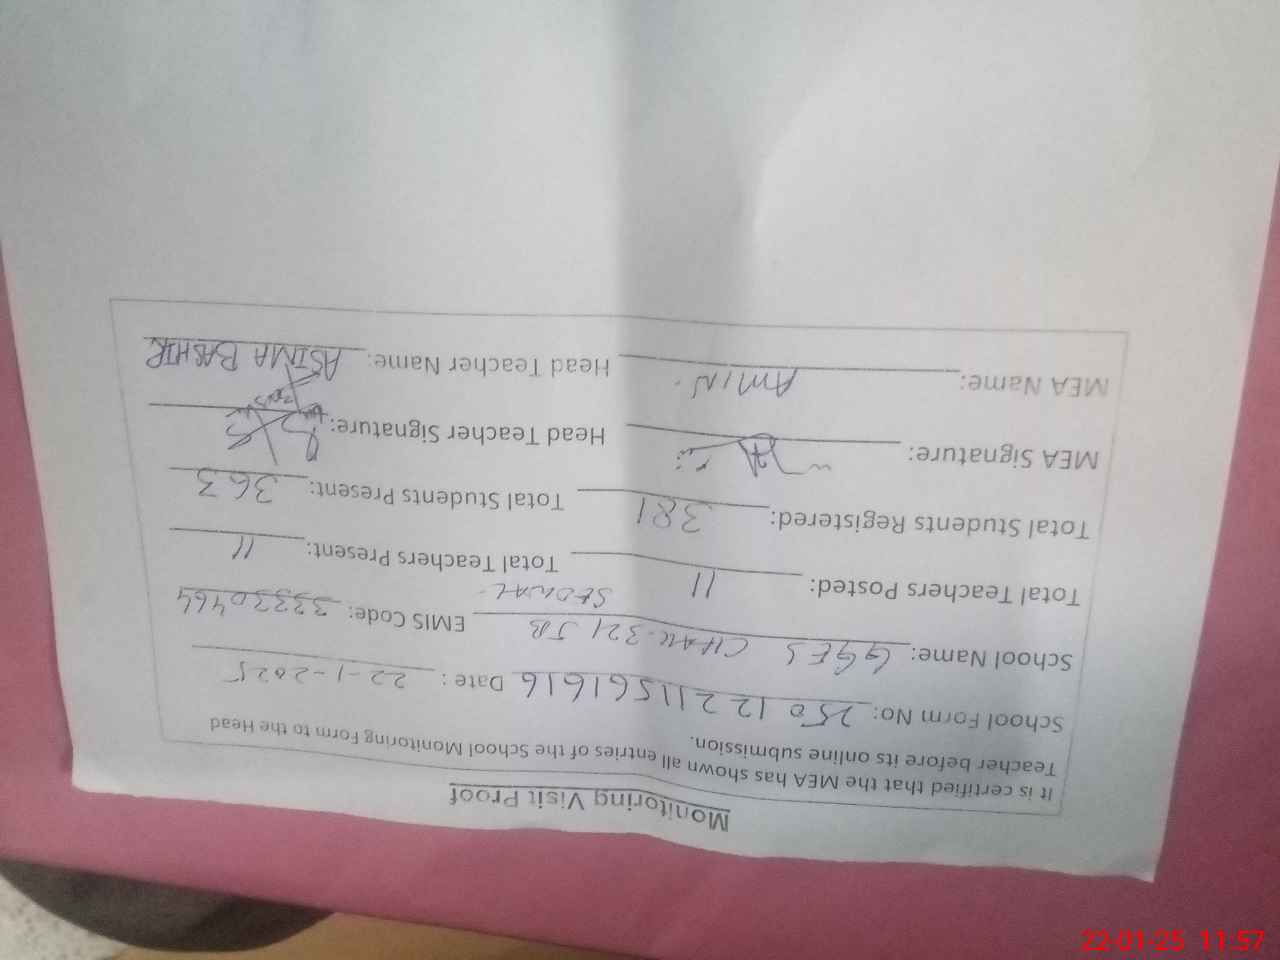 Monitoring Visit Proof
It is certified that the MEA has shown all entries of the School Monitoring Form to the Head
Teacher before its online submission.
School Form No: 25012211561616 Date : 22-1-2025
School Name: GGES CHAK-321 JB EMIS Code: 33330464
Total Teachers Posted: 11 Total Teachers Present: 11
Total Students Registered: 381 Total Students Present: 363
MEA Signature: Head Teacher Signature:
MEA Name: AMIN. Head Teacher Name: ASIMA BASHIR
22-01-25 11:57